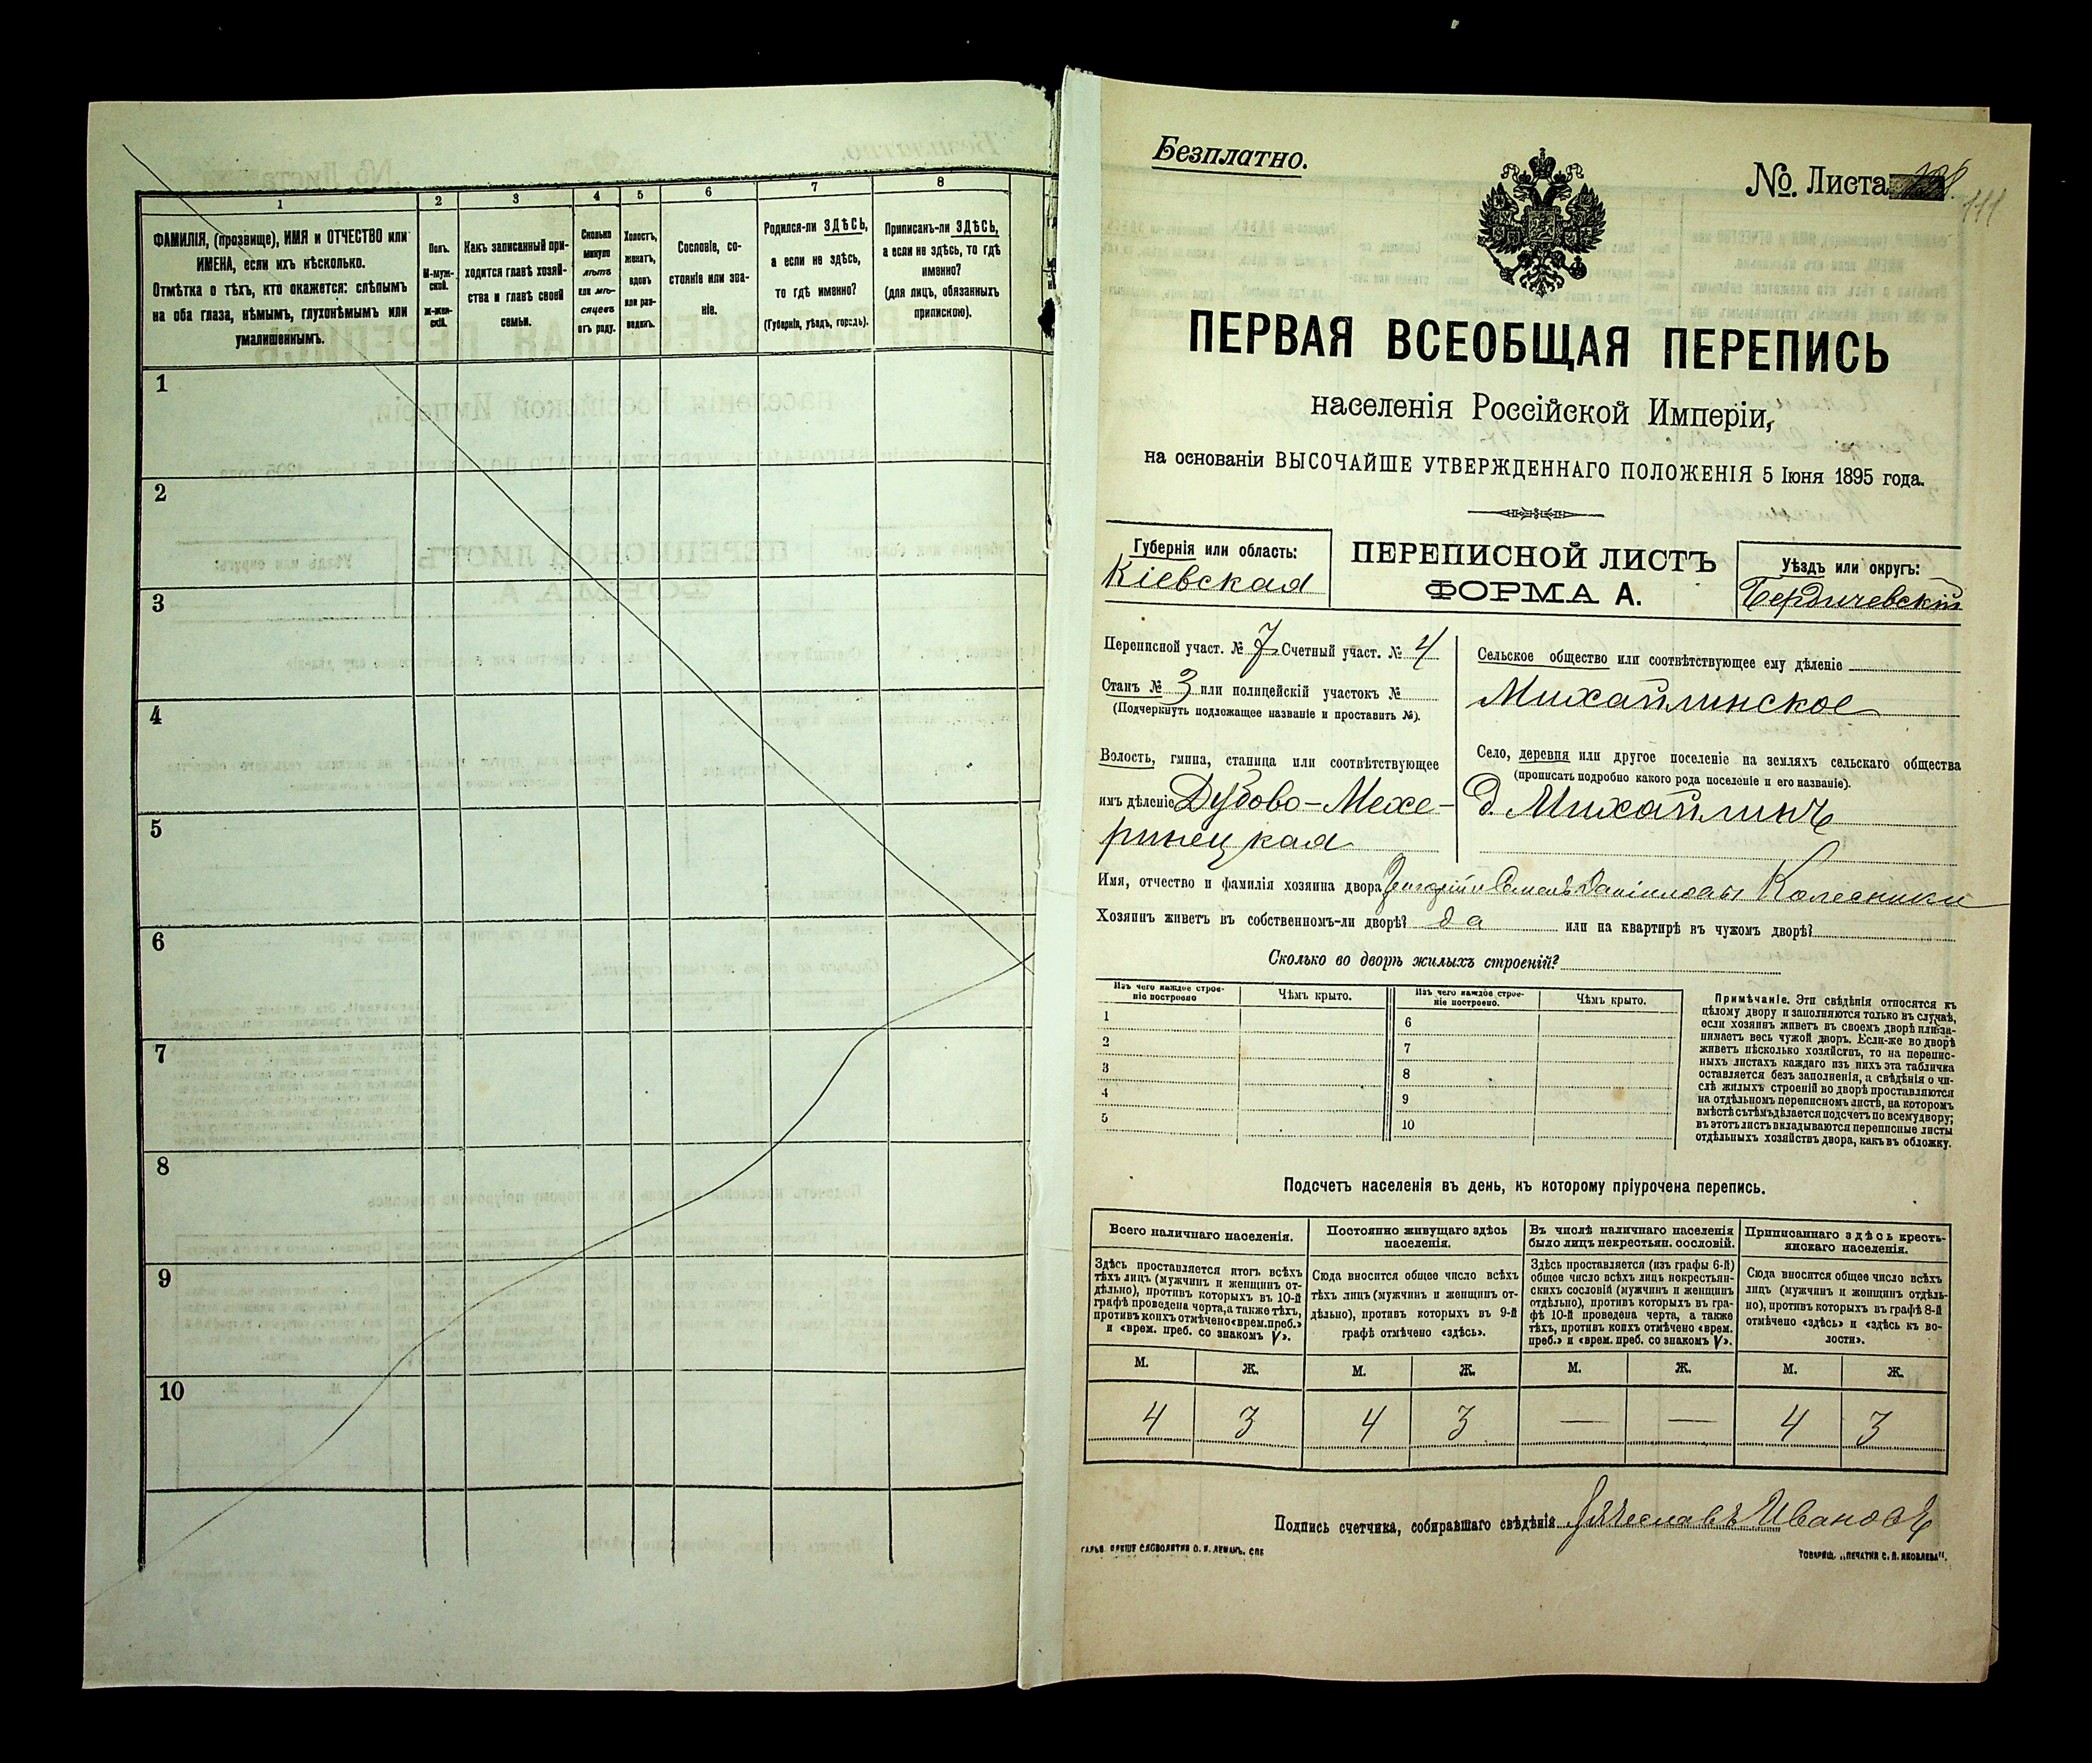 1 2 3 4 5 6 7 8
ФАМИЛІЯ, (прозвище), ИМЯ и ОТЧЕСТВО или
ИМЕНА, если ихъ нѣсколько.
Отмѣтка о тѣхъ, кто окажется: слѣпымъ
на оба глаза, нѣмымъ, глухонѣмымъ или
умалишеннымъ.
Полъ.
М-муж-
ской.
ж-жен-
скій.
Какъ записанный при-
ходится главѣ хозяй-
ства и главѣ своей
семьи.
Сколько
минуло
лѣтъ
или мѣ-
сяцевъ
отъ роду.
Холостъ,
женатъ,
вдовъ
или раз-
веденъ.
Сословіе, со-
стояніе или зва-
ніе.
Родился-ли ЗДѢСЬ,
а если не здѣсь,
то гдѣ именно?
(Губернія, уѣздъ, городъ).
Приписанъ-ли ЗДѢСЬ,
а если не здѣсь, то гдѣ
именно?
(для лицъ, обязанныхъ
припискою).
1
2
3
4
5
6
7
8
9
10
Безплатно.
№. Листа
111
ПЕРВАЯ ВСЕОБЩАЯ ПЕРЕПИСЬ
населенія Россійской Имперіи,
на основаніи ВЫСОЧАЙШЕ УТВЕРЖДЕННАГО ПОЛОЖЕНІЯ 5 Іюня 1895 года.
Губернія или область:
Кіевская
ПЕРЕПИСНОЙ ЛИСТЪ
ФОРМА А.
Уѣздъ или округъ:
Бердичевскій
Переписной участ. № 7 Счетный участ. № 4
Станъ № 3 или полицейскій участокъ №
(Подчеркнуть подлежащее названіе и проставить №).
Волость, гмина, станица или соотвѣтствующее
имъ дѣленіе Дубово-Мехе-
ринецкая
Сельское общество или соотвѣтствующее ему дѣленіе
Михайлинское
Село, деревня или другое поселеніе на земляхъ сельскаго общества
(прописать подробно какого рода поселеніе и его названіе).
д. Михайлинъ
Имя, отчество и фамилія хозяина двора Григорій и Емельянъ Даніиловы Колесники
Хозяинъ живетъ въ собственномъ-ли дворѣ? да или на квартирѣ въ чужомъ дворѣ?
Сколько во дворѣ жилыхъ строеній?
Изъ чего каждое строе-
ніе построено
Чѣмъ крыто.
Изъ чего каждое строе-
ніе построено.
Чѣмъ крыто.
1
2
3
4
5
6
7
8
9
10
Примѣчаніе. Эти свѣдѣнія относятся къ
цѣлому двору и заполняются только въ случаѣ,
если хозяинъ живетъ въ своемъ дворѣ или за-
нимаетъ весь чужой дворъ. Если-же во дворѣ
живетъ нѣсколько хозяйствъ, то на перепис-
ныхъ листахъ каждаго изъ нихъ эта табличка
оставляется безъ заполненія, а свѣдѣнія о чи-
слѣ жилыхъ строеній во дворѣ проставляются
на отдѣльномъ переписномъ листѣ, на которомъ
вмѣстѣ съ тѣмъ дѣлается подсчетъ по всему двору;
въ этотъ листъ вкладываются переписные листы
отдѣльныхъ хозяйствъ двора, какъ въ обложку.
Подсчетъ населенія въ день, къ которому пріурочена перепись.
Всего наличнаго населенія.
Здѣсь проставляется итогъ всѣхъ
тѣхъ лицъ (мужчинъ и женщинъ от-
дѣльно), противъ которыхъ въ 10-й
графѣ проведена черта, а также тѣхъ,
противъ коихъ отмѣчено «врем. преб.»
и «врем. преб. со знакомъ V».
Постоянно живущаго здѣсь
населенія.
Сюда вносится общее число всѣхъ
тѣхъ лицъ (мужчинъ и женщинъ от-
дѣльно), противъ которыхъ въ 9-й
графѣ отмѣчено «здѣсь».
Въ числѣ наличнаго населенія
было лицъ некрестьян. сословій.
Здѣсь проставляется (изъ графы 6-й)
общее число всѣхъ лицъ некрестьян-
скихъ сословій (мужчинъ и женщинъ
отдѣльно), противъ которыхъ въ гра-
фѣ 10-й проведена черта, а также
тѣхъ, противъ коихъ отмѣчено «врем.
преб.» и «врем. преб. со знакомъ V».
Приписаннаго здѣсь кресть-
янскаго населенія.
Сюда вносится общее число всѣхъ
лицъ (мужчинъ и женщинъ отдѣль-
но), противъ которыхъ въ графѣ 8-й
отмѣчено «здѣсь» и «здѣсь къ во-
лости».
М. Ж. М. Ж. М. Ж. М. Ж.
4 3 4 3 — — 4 3
Подпись счетчика, собиравшаго свѣдѣнія Вячеславъ Ивановъ
СЛОВОЛИТНИ О. И. ЛЕМАНЪ. СПБ
ТОВАРИЩ. „ПЕЧАТНЯ С. П. ЯКОВЛЕВА".